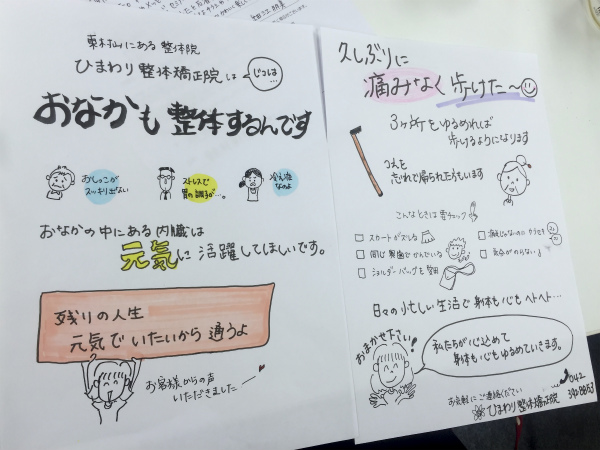 東村山にある 整体院
ひまわり整体矯正院は じつは…
おなかも整体するんです
おしっこが
スッキリ出ない
ストレスで
胃の調子が…。
冷え症
なのよ
おなかの中にある内臓は
元気に活躍してほしいです。
残りの人生
元気でいたいから通うよ
お客様からの声
いただきました
久しぶりに
痛みなく歩けた〜
3ヶ所をゆるめれば
歩けるようになります
つえを
忘れて帰られた方もいます
こんなときは要チェック
スカートがズレる
同じ奥歯でかんでいる
ショルダーバッグを愛用
気分がのらない
日々の忙しい生活で身体も心もヘトヘト…
おまかせ下さい!
私たちが心込めて
身体も心もゆるめていきます。
お気軽にご連絡ください
ひまわり整体矯正院
042
392 8853